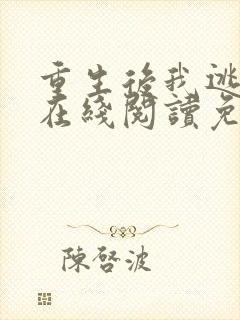 重生後我逃
在綫閱讀免
陳啓波